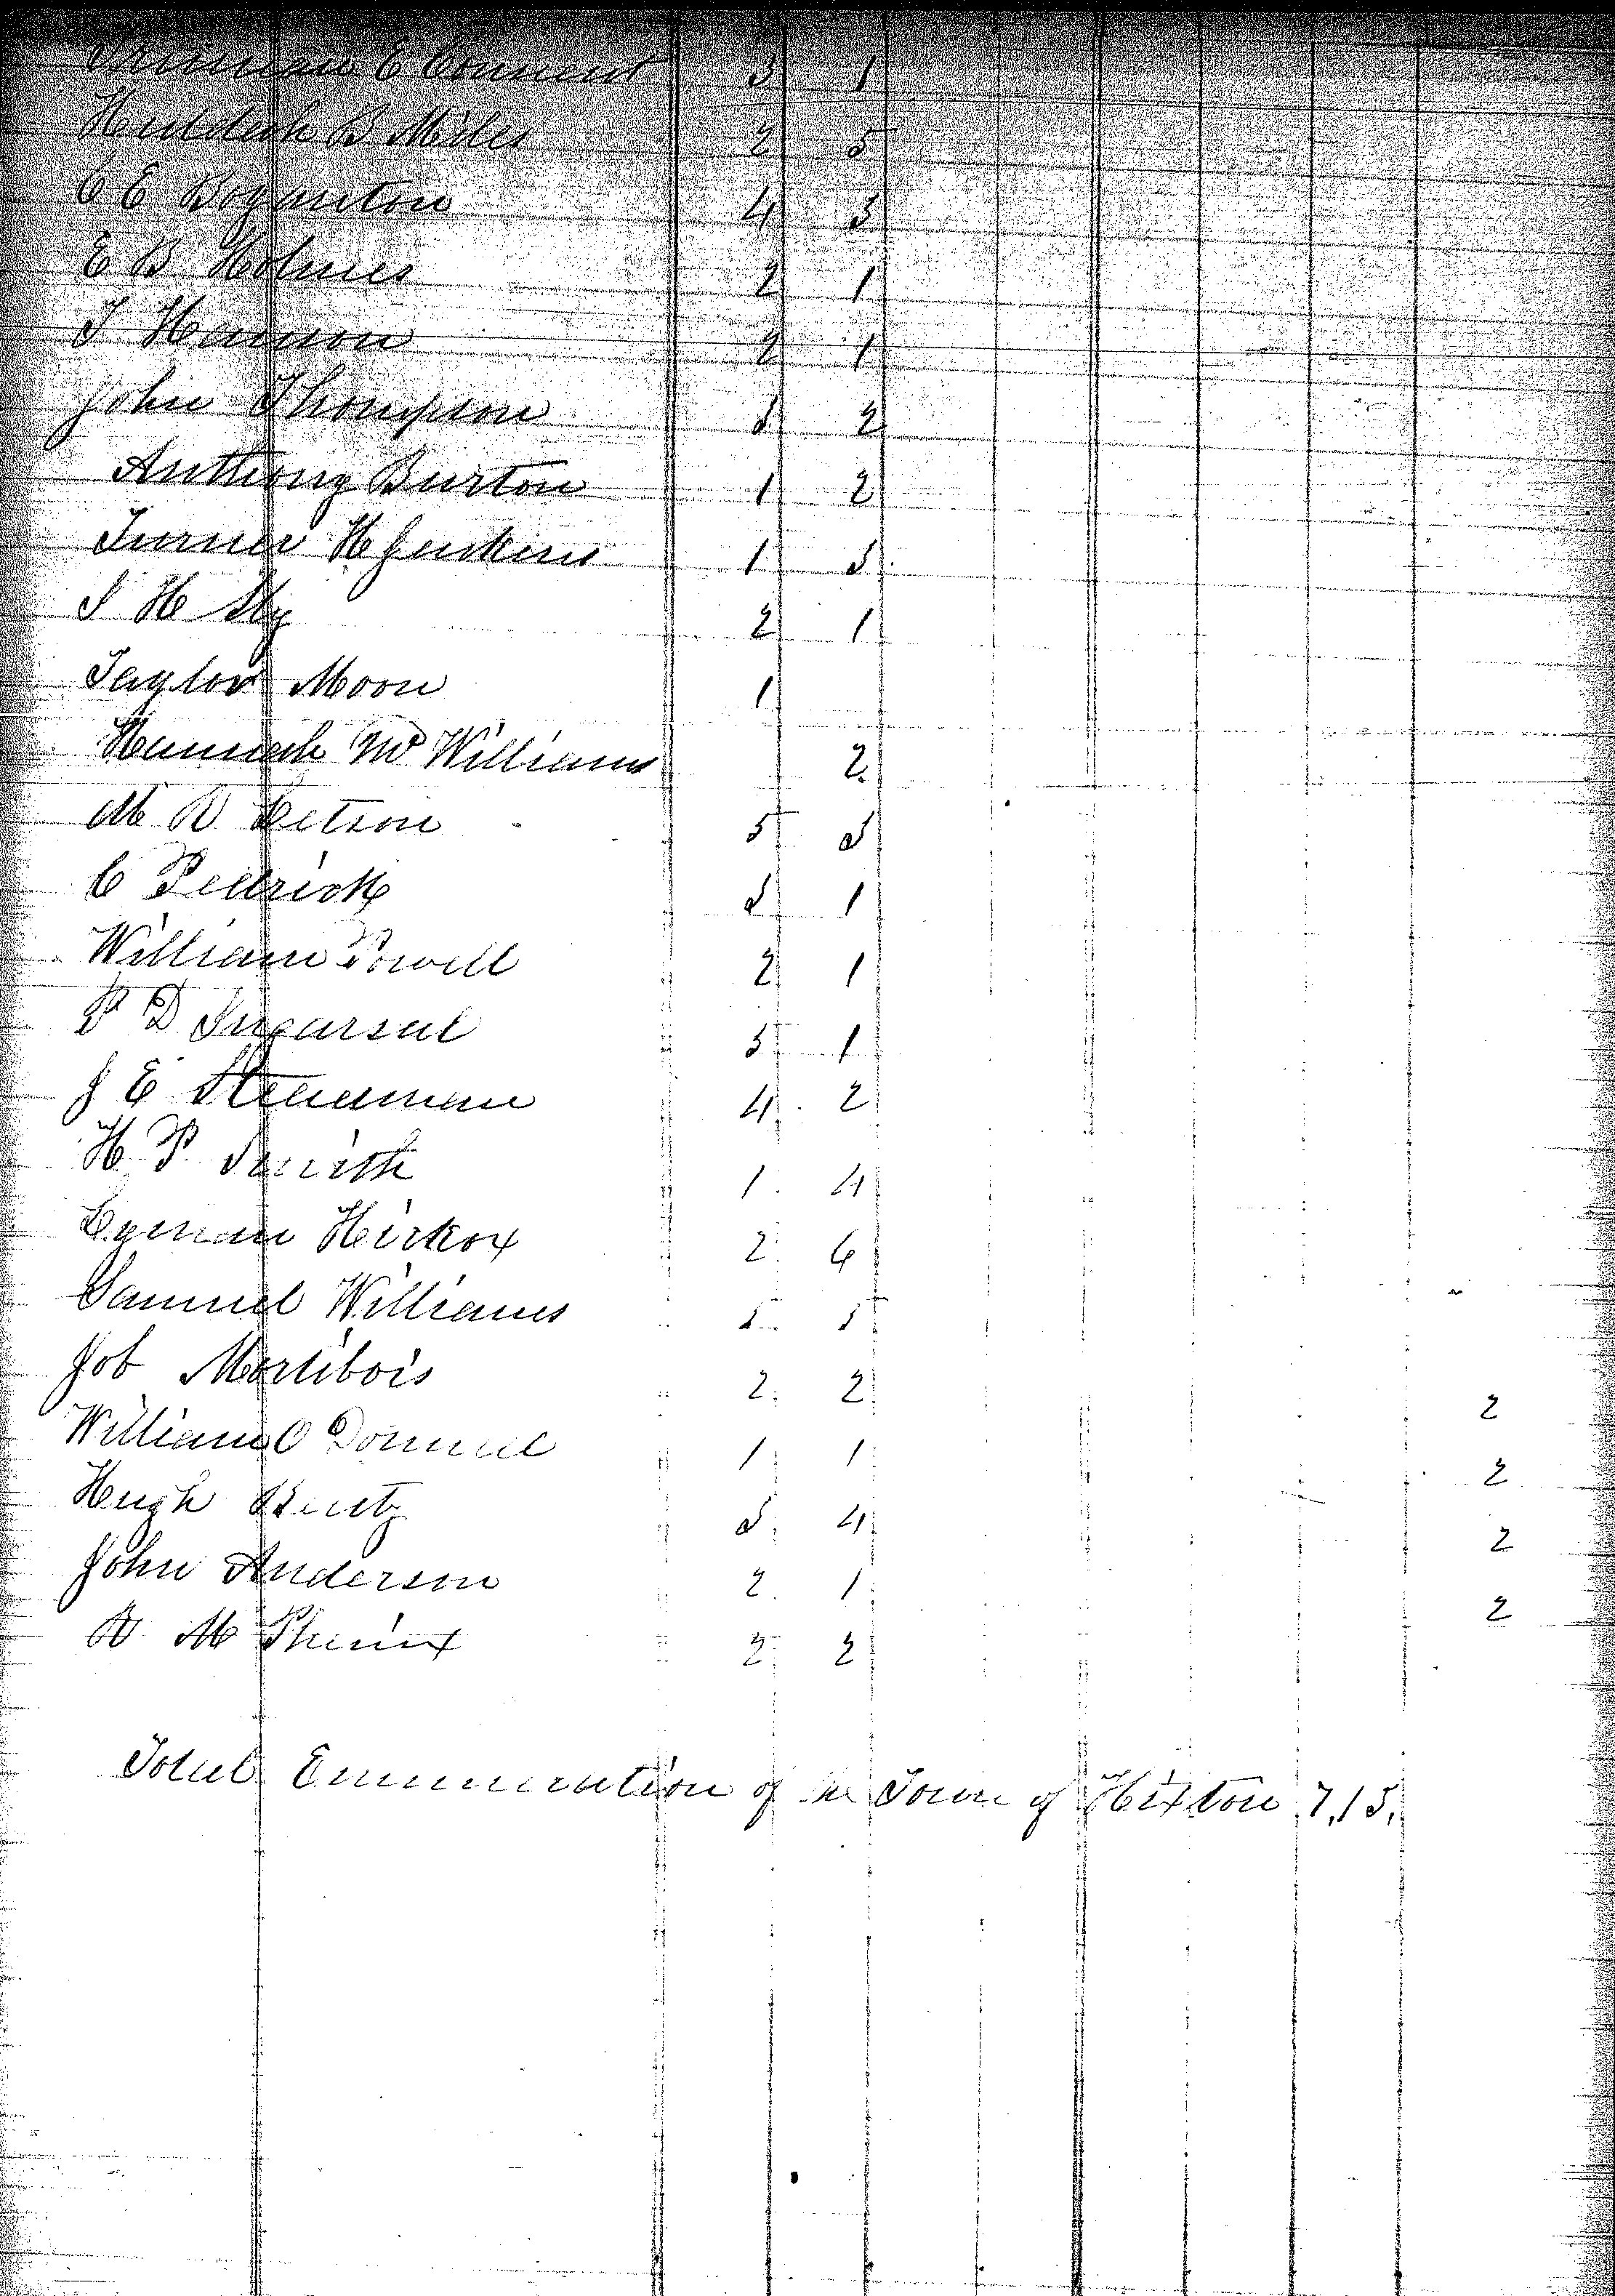 Truman E Connent 3 1
Huldah B Miles 2 5
C E Boyanton 4 3
E B Holmes 2 1
J Hannon 2 1
John Thompson 3 2
Anthony Burton 1 2
Turner H Jenkins 1 3
S H Sly 2 1
Taylor Moon 1
Hannah M Williams 2
M B Letson 5 3
C Pedrick 3 1
William Powell 2 1
P D Ingarsul 5 1
J E Steadman 4 2
H P Smith 1 4
Lyman Hickox 2 6
Samuel Williams 1 5
Job Mortibois 2 2 2
William O Donnul 1 1 2
Hugh 3 4 2
John Anderson 2 1 2
B M Phenix 2 2
Total Enumeration of the Town of Hixton 7,15,